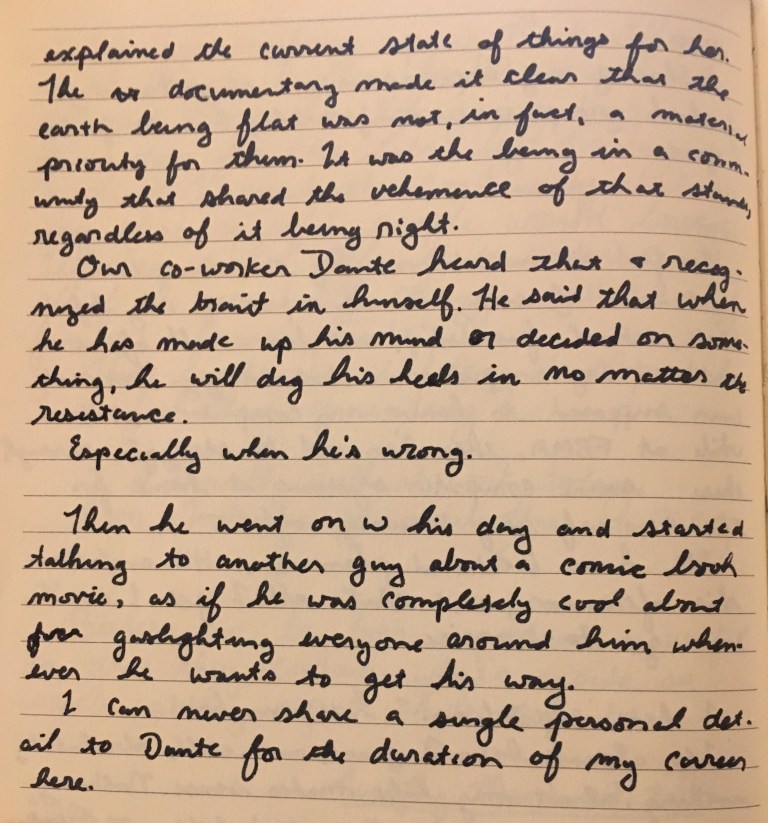 explained the current state of things for her.
The documentary made it clear that the
earth being flat was not, in fact, a material
priority for them. It was the being in a comm-
unity that shared the vehemence of that stance,
regardless of it being right.
Our co-worker Dante heard that & recog-
nized the trait in himself. He said that when
he has made up his mind or decided on some-
thing, he will dig his heels in no matter the
resistance.
Especially when he's wrong.
Then he went on w his day and started
talking to another guy about a comic book
movie, as if he was completely cool about
gaslighting everyone around him when-
ever he wants to get his way.
I can never share a single personal det-
ail to Dante for the duration of my career
here.